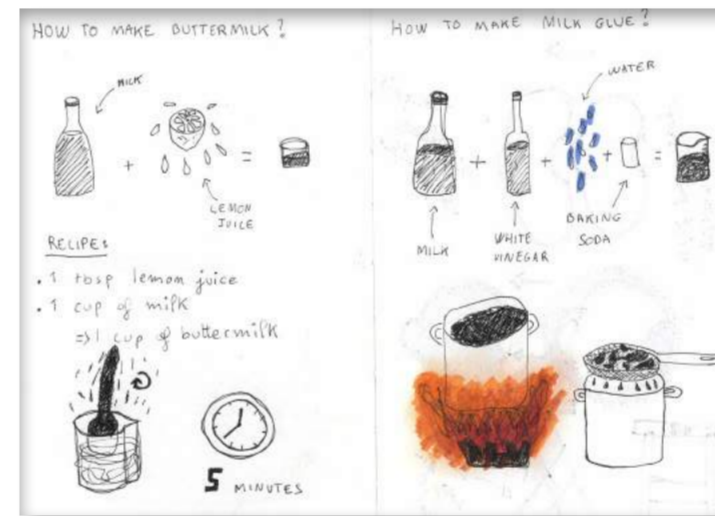 HOW TO MAKE BUTTERMILK?
MILK
+
=
LEMON
JUICE
RECIPE:
. 1 tbsp lemon juice
. 1 cup of milk
=> 1 cup of buttermilk
5 MINUTES
HOW TO MAKE MILK GLUE?
WATER
+ + + =
MILK
WHITE
VINEGAR
BAKING
SODA